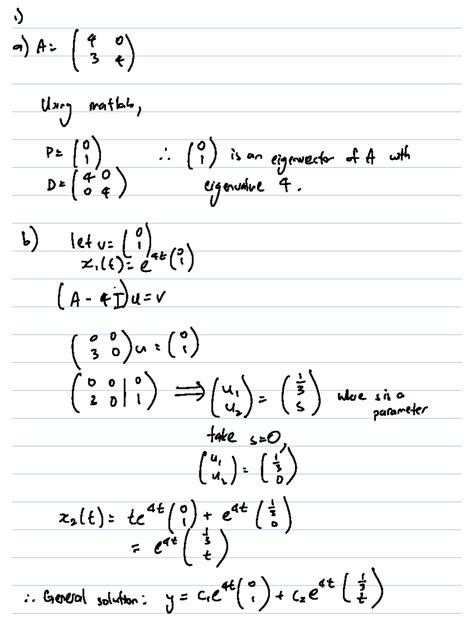 1)
a) A = ( 4 0
3 4 )
Using matlab,
P = ( 0
1 ) ∴ ( 0
1 ) is an eigenvector of A with
D = ( 4 0
0 4 ) eigenvalue 4.
b) let v = ( 0
1 )
x₁(t) = e^4t ( 0
1 )
(A - 4I)u = v
( 0 0
3 0 ) u = ( 0
1 )
( 0 0 | 0
3 0 | 1 ) ⟹ ( u₁
u₂ ) = ( 1/3
s ) where s is a
parameter
take s=0,
( u₁
u₂ ) = ( 1/3
0 )
x₂(t) = te^4t ( 0
1 ) + e^4t ( 1/3
0 )
= e^4t ( 1/3
t )
∴ General solution: y = c₁e^4t ( 0
1 ) + c₂e^4t ( 1/3
t )